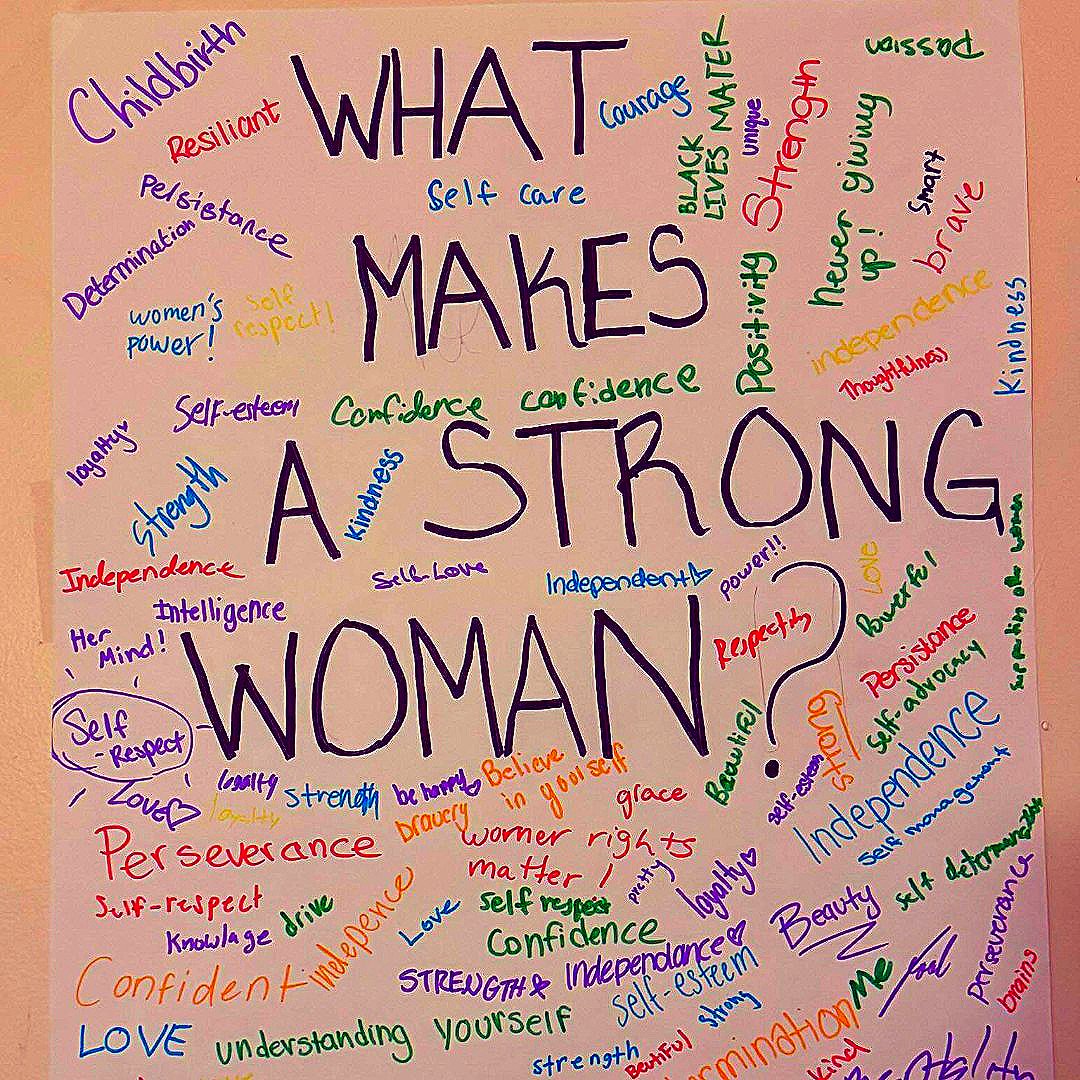 Childbirth
WHAT
Courage
BLACK
LIVES MATER
unique
Strength
Passion
Resiliant
Never giving
up!
Smart
brave
Self care
Pelsistance
Determination
MAKES
women's
power!
self
respect!
Positivity
independence
Thoughtfulness
Kindness
Self-esteem
Confidence
confidence
loyalty
A STRONG
Strength
Kindness
Independence
Self-Love
Independent
power!!
LOVE
Powerful
Intelligence
Her
Mind!
WOMAN?
Respect
Persistance
Self-advocacy
Self
-Respect
Beautiful
self-esteem
Independence
self management
Love
loyalty
loyalty
strength
be happy
Believe
in yourself
bravery
grace
Perseverance
women rights
matter!
pretty
loyalty
self-respect
drive
indepence
Love
self respect
Beauty
self determination
Knowlage
Confidence
perseverance
Confident
STRENGTH
Independance
self-esteem
Me
brains
LOVE
understanding yourself
strong
strength
Beautiful
rmination
kind